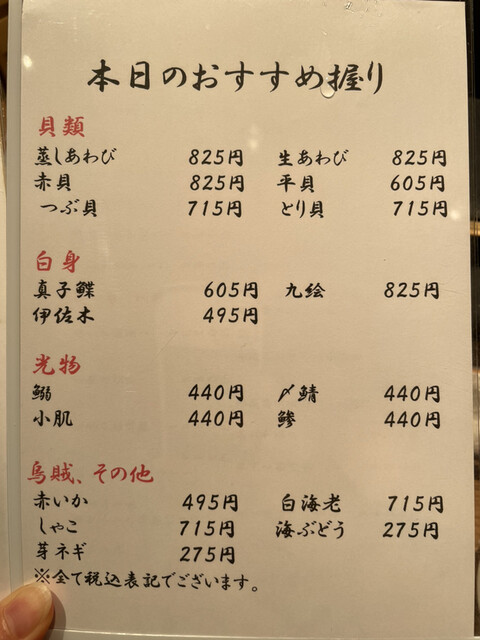 本日のおすすめ握り
貝類
蒸しあわび 825円 生あわび 825円
赤貝 825円 平貝 605円
つぶ貝 715円 とり貝 715円
白身
真子鰈 605円 九絵 825円
伊佐木 495円
光物
鰯 440円 〆鯖 440円
小肌 440円 鯵 440円
烏賊、その他
赤いか 495円 白海老 715円
しゃこ 715円 海ぶどう 275円
芽ネギ 275円
※全て税込表記でございます。